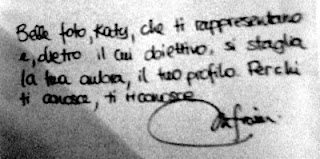 Belle foto, Katy, che ti rappresentano
e, dietro il cui obiettivo, si staglia
la tua ombra, il tuo profilo. Per chi
ti conosce, ti riconosce